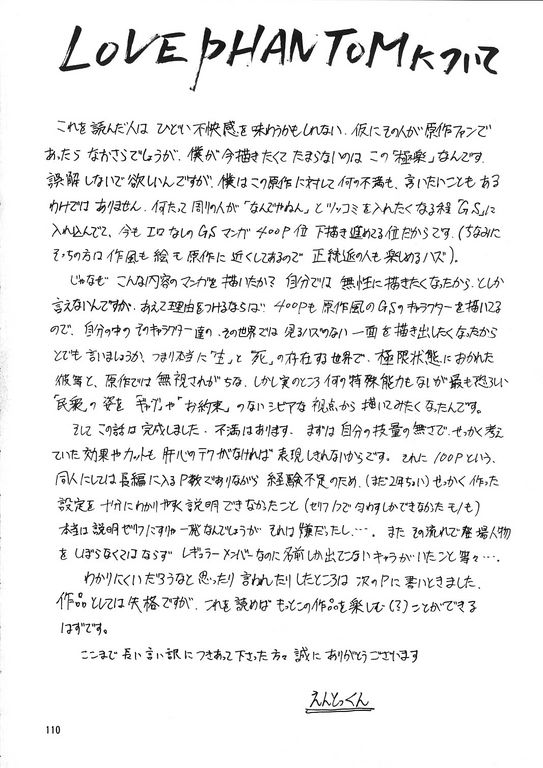 LOVE PHANTOMについて
これを読んだ人は ひどい不快感を味わうかもしれない. 仮にその人が原作ファンで
あったら なおさらでしょうが. 僕が今描きたくて たまらないのは この「極楽」なんです.
誤解しないで欲しいんですが. 僕はこの原作に対して何の不満も、言いたいことも ある
わけでは ありません. 何たって周りの人が「なんでやねん」とツッコミを入れたくなる程「GS」に
入れ込んでて、今も エロなしの GSマンガ 400P位 下描き進めてる位だからです。(ちなみに
そっちの方は作風も 絵も 原作に 近くしてあるので 正統派の人も楽しめるハズ).
じゃなぜ こんな内容のマンガを描いたか? 自分では 無性に描きたくなったから、としか
言えないんですが、あえて理由をつけるならば、400Pも 原作風のGSのキャラクターを描いてる
ので、自分の中の そのキャラクター達の、その世界では 見るハズのない 一面を描き出したくなったから
とでも言いましょうか、つまり本当に「生」と「死」の存在する世界で、極限状態に おかれた
彼等と、原作では 無視されがちな、しかし実のところ 何の特殊能力もないが最も恐ろしい
「民衆」の姿を「ギャグ」や「お約束」のない シビアな視点から 描いてみたくなったんです。
そして この話は 完成しました. 不満はあります. まずは 自分の技量の無さで、せっかく考え
ていた効果やカットも 肝心のテクがなければ 表現しきれないからです。それに 100Pという、
同人にしては長編に入るP数でありながら 経験不足のため. (まだ2年ちょい) せっかく作った
設定を十分にわかりやすく説明できなかったこと (セリフで匂わすしかできなかったモノも)
本当は 説明ゼリフにすりゃ一発なんでしょうが それは嫌だったし…. また その流れで登場人物
を しぼらなくてはならず レギュラーメンバーなのに名前しか出てこないキャラがいたこと等々….
わかりにくいだろうなと思ったり 言われたりしたところは 次のPに書いときました.
作品としては失格ですが、これを読めば もっとこの作品を楽しむ(?)ことができる
はずです。
ここまで長い言い訳につきあって下さった方々 誠に ありがとうございます
えんとっくん
110